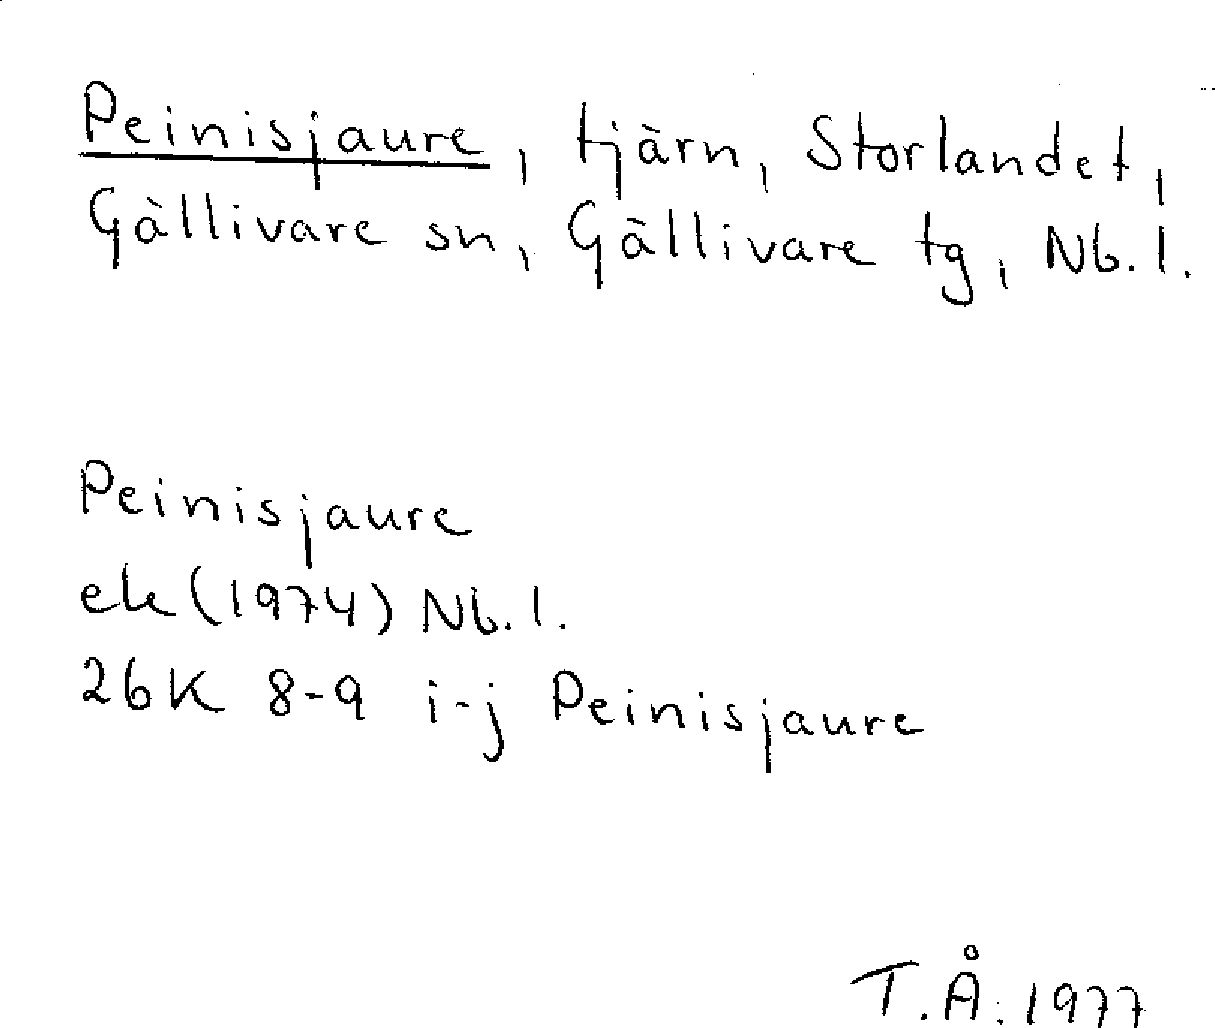 Peinisjaure, tjärn, Storlandet,
Gällivare sn, Gällivare tg, Nb. l.
Peinisjaure
ek (1974) Nb. l.
26K 8-9 i-j Peinisjaure
T.Å. 1977